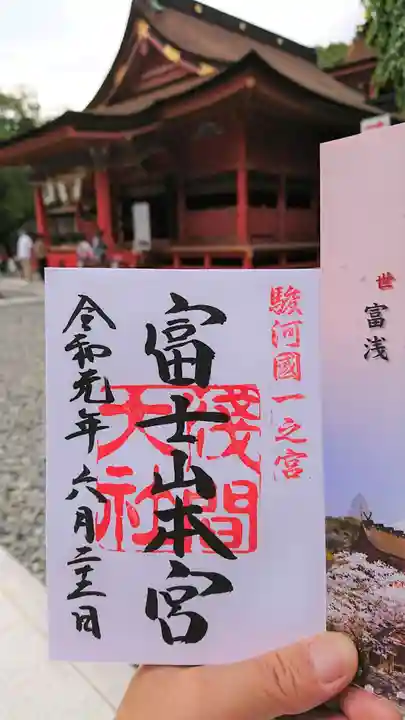 駿河國一之宮
富士山本宮
淺間
大社
令和元年 六月二十三日
世
富浅